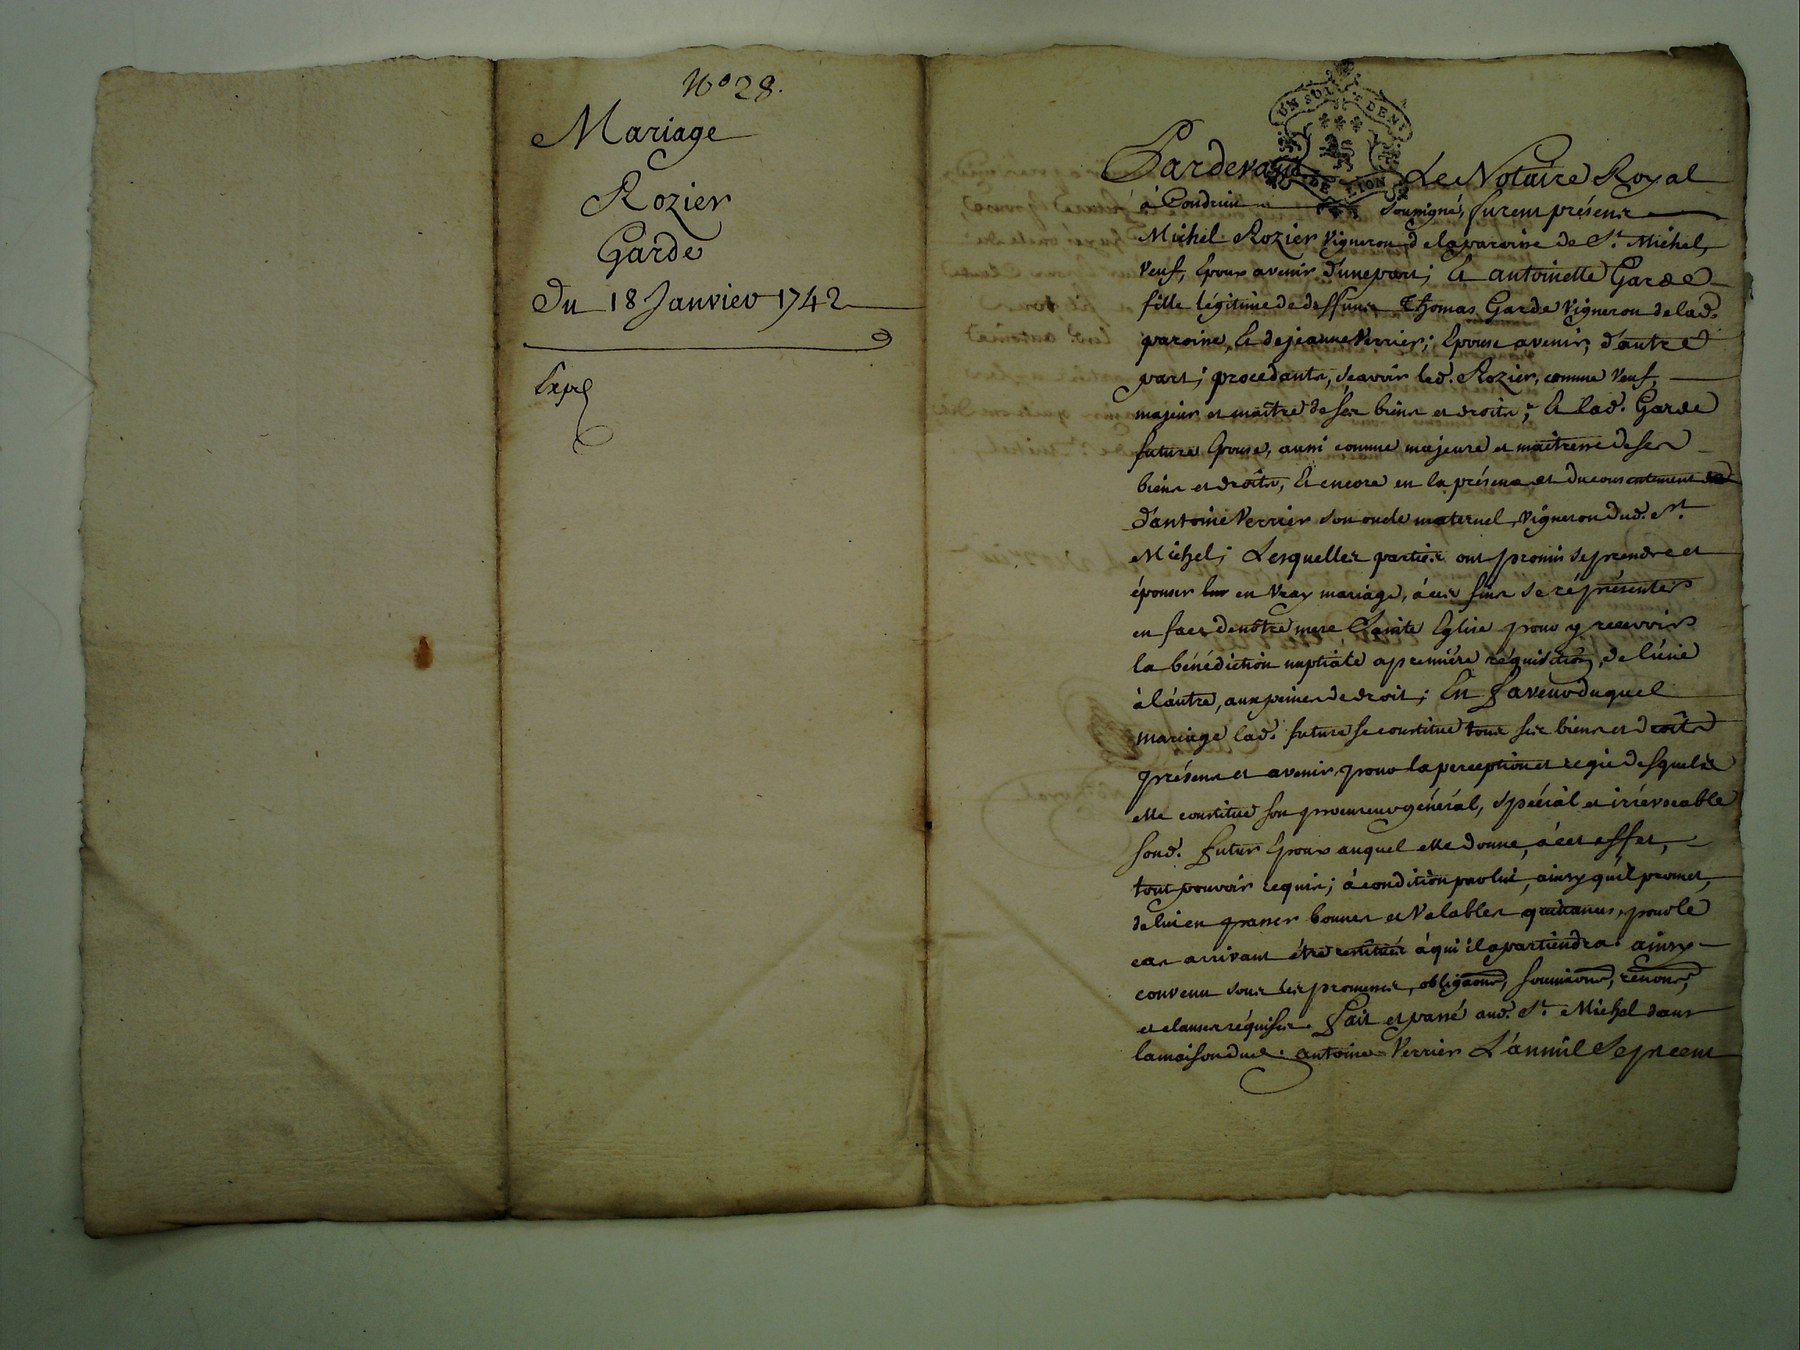 N° 28.
Mariage
Rozier
Garde
Du 18 Janvier 1742
Exp.
UN SOL 4 DENI
G. DE LION
Pardevant Le Notaire Royal
à Condrieu soussigné, furent présens
Michel Rozier vigneron de la paroisse de St. Michel,
veuf, Epoux avenir d'une part; Et antoinette Garde
fille légitime de deffunt Thomas Garde vigneron de lad.
paroisse, Et de jeanne Verrier; Epouse avenir, d'autre
part; procedants, sçavoir led. Rozier, comme veuf,
majeur et maître de ses biens et droits; Et lad. Garde
future Epouse, aussi comme majeure et maitresse de ses
biens et droits, Et encore en la présence et du consentement
d'antoine Verrier son oncle maternel, vigneron dud. St.
Michel; Lesquelles parties ont promis se prendre et
épouser en vray mariage, à ces fins se réprésenter
en face de nôtre mere Sainte Eglise pour y recevoir
la bénédiction nuptiale a premiére réquisition, de l'une
à l'autre, aux peines de droit; En faveur duquel
mariage lad. future se constitue tous ses biens et droits
présens et avenir, pour la perception et regie desquels
elle constitue son procureur général, spécial et irrévocable
sond. futur Epoux auquel elle donne, à cet effet,
tout pouvoir requis; à condition par lui, ainsy qu'il promet,
de lui en passer bonnes et valables quittances, pour le
cas arrivant être restitués à qui il apartiendra. ainsy
convenu sous les promesses, obligaons, soumissions, renons,
et clauses réquises. fait et passé aud. St. Michel dans
la maison dud. antoine Verrier L'an mil sept cent